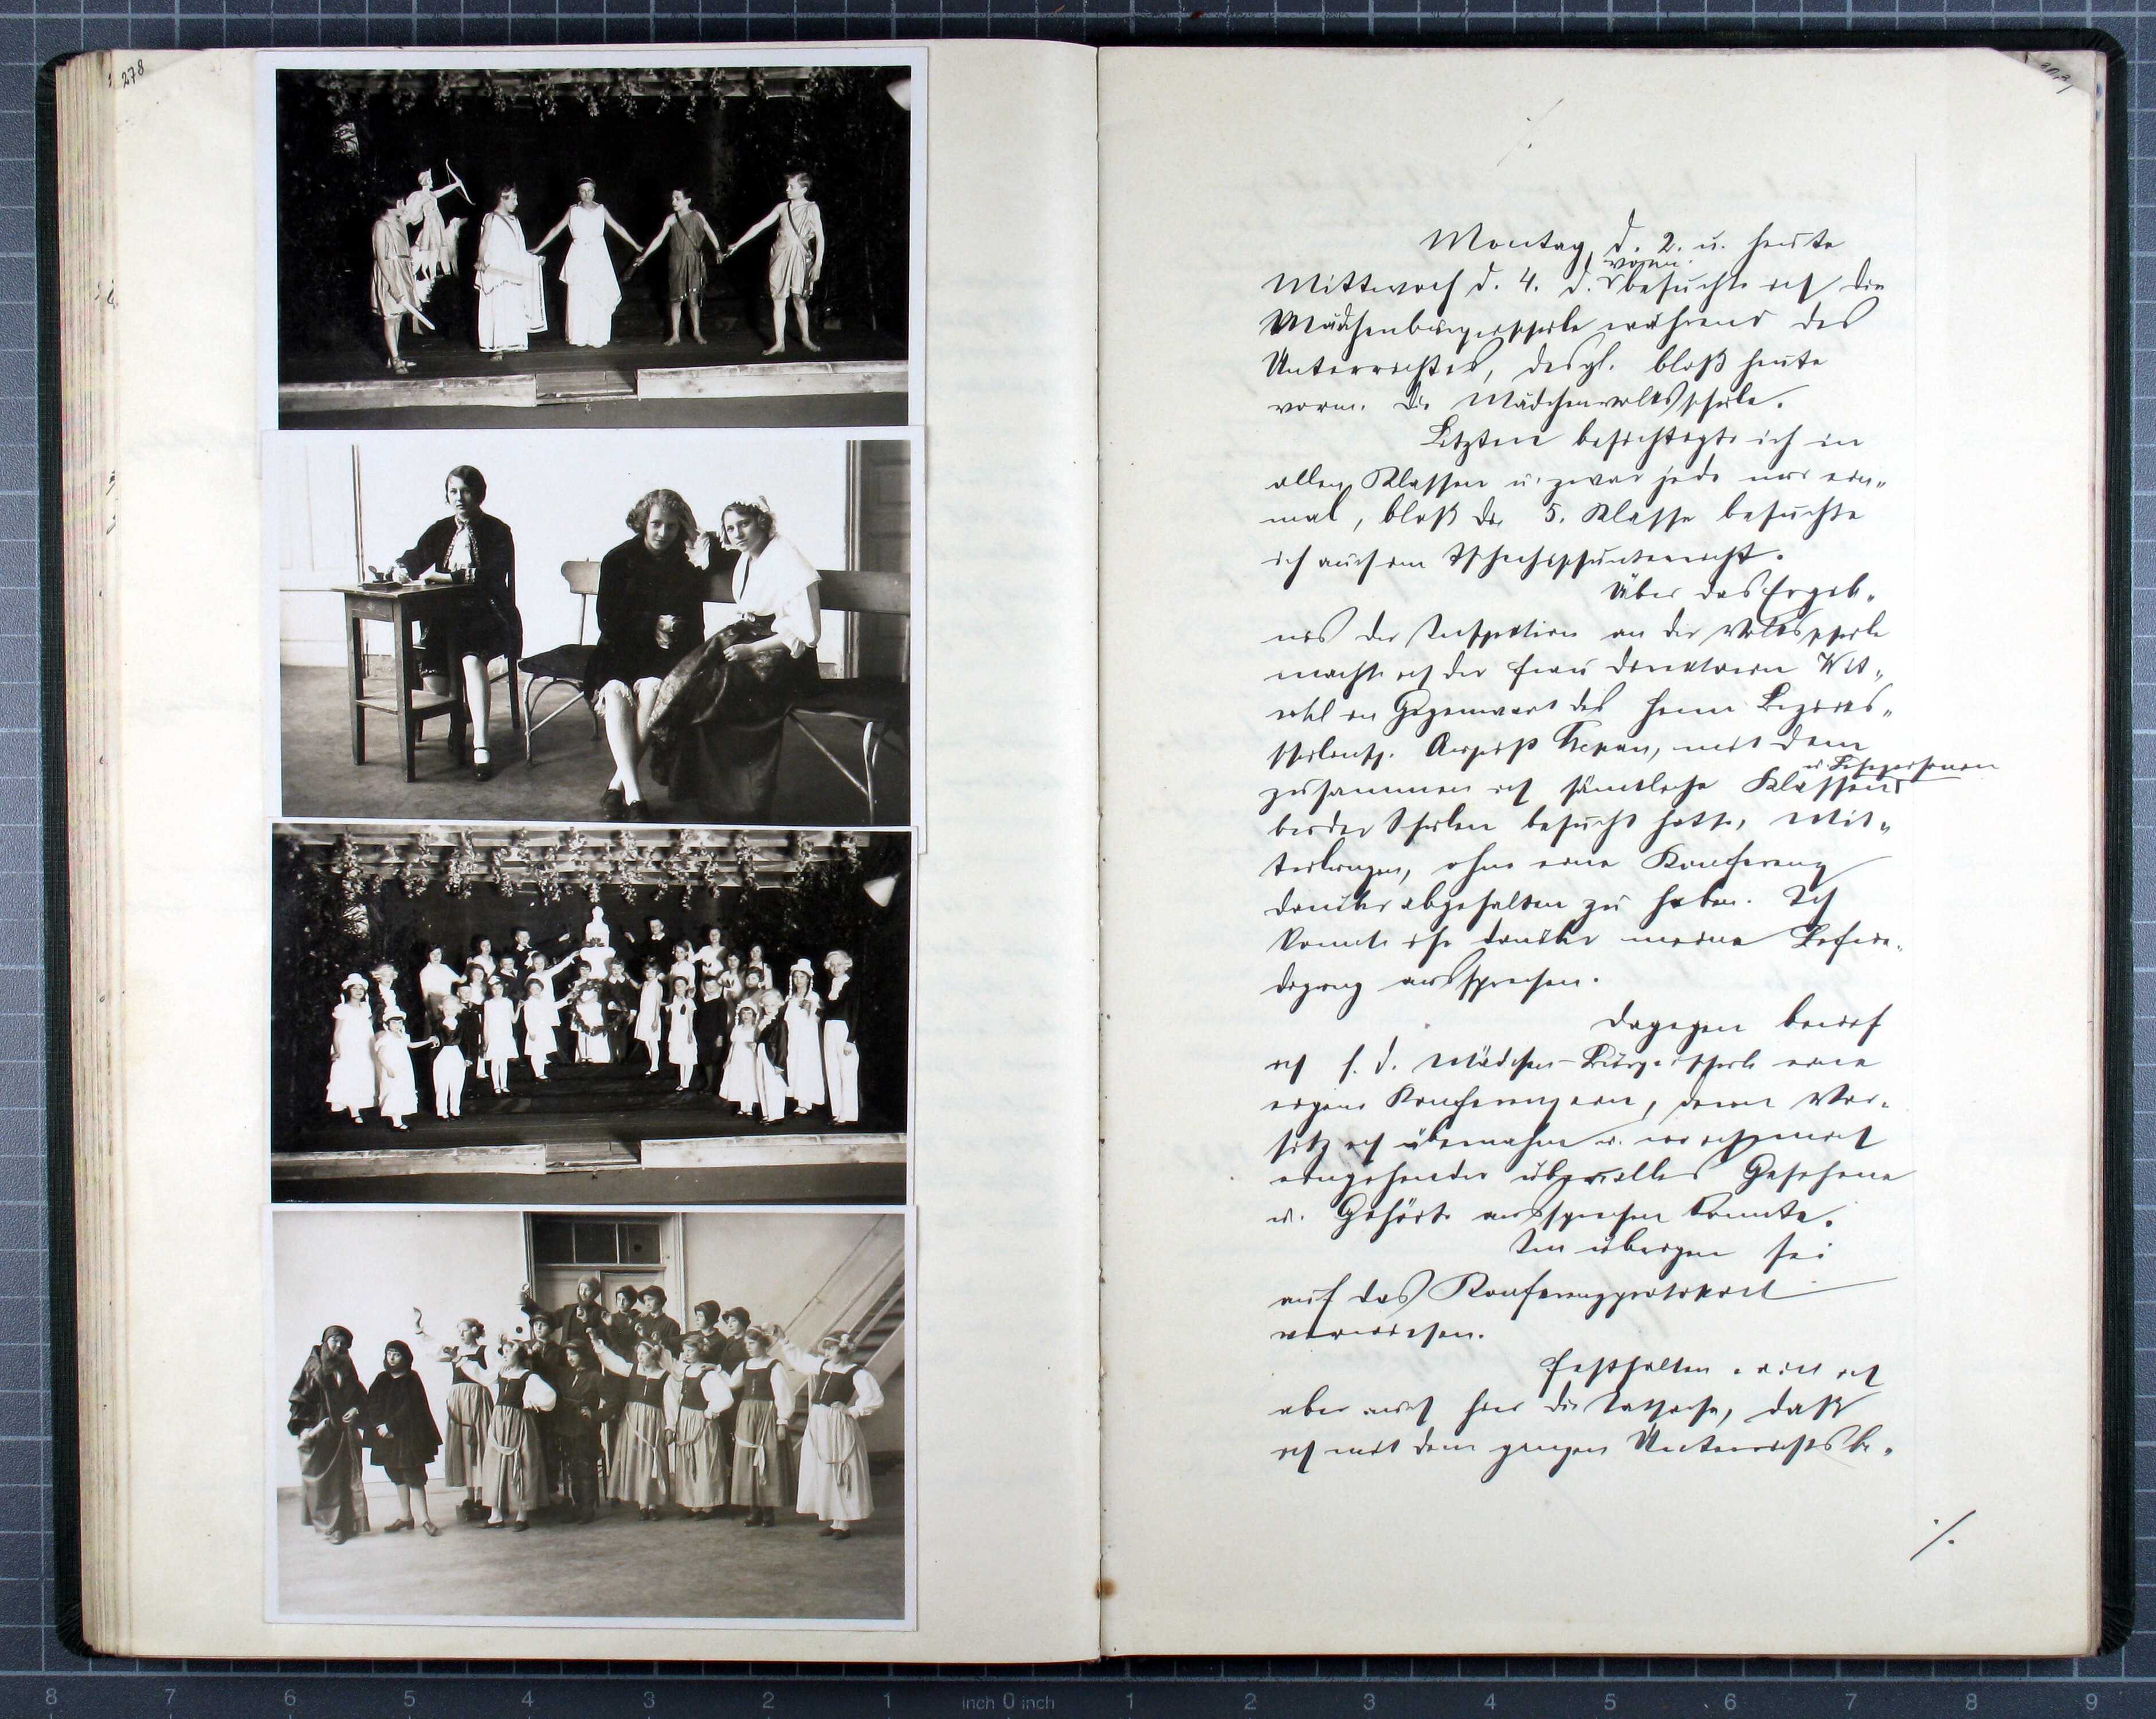 278
Montag, d. 2. u. heute
vorm.
Mittwoch d. 4. d. besuchte ich die
Mädchenbürgerschule während des
Unterrichtes, desgl. bloß heute
vorm. die Mädchenvolksschule.
Letztere besichtigte ich in
allen Klassen u. zwar jede nur ein-
mal, bloß die 5. Klasse besuchte
ich auch im Tschechischunterricht.
Über das Ergeb-
nis der Inspektion an der Volksschule
machte ich der Frau Direktorin
in Gegenwart des Herrn Bezirks-
schulinsp. mit dem
u. Lehrpersonen
zusammen ich sämtliche Klassen
beider Schulen besucht hatte, Mit-
teilungen, ohne eine Konferenz
darüber abgehalten zu haben. Ich
konnte ihr darüber meine Befrie-
digung aussprechen.
Dagegen berief
ich f. d. Mädchen-Bürgerschule eine
eigene Konferenz ein, deren Vor-
sitz ich übernahm u. wo ich mich
eingehender über alles Gesehene
u. Gehörte aussprechen konnte.
Im übrigen sei
auf das Konferenzprotokoll
verwiesen.
Festhalten will ich
aber auch hier die Tatsache, daß
ich mit dem ganzen Unterrichtsbe-
./.
8 7 6 5 4 3 2 1 inch 0 inch 1 2 3 4 5 6 7 8 9